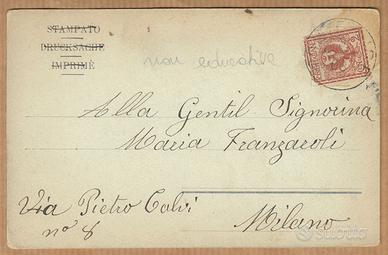 STAMPATO
DRUCKSACHE
IMPRIMÉ
non
Alla Gentil. Signorina
Maria Franzaroli
Via Pietro Calvi
n° 8
Milano
subito